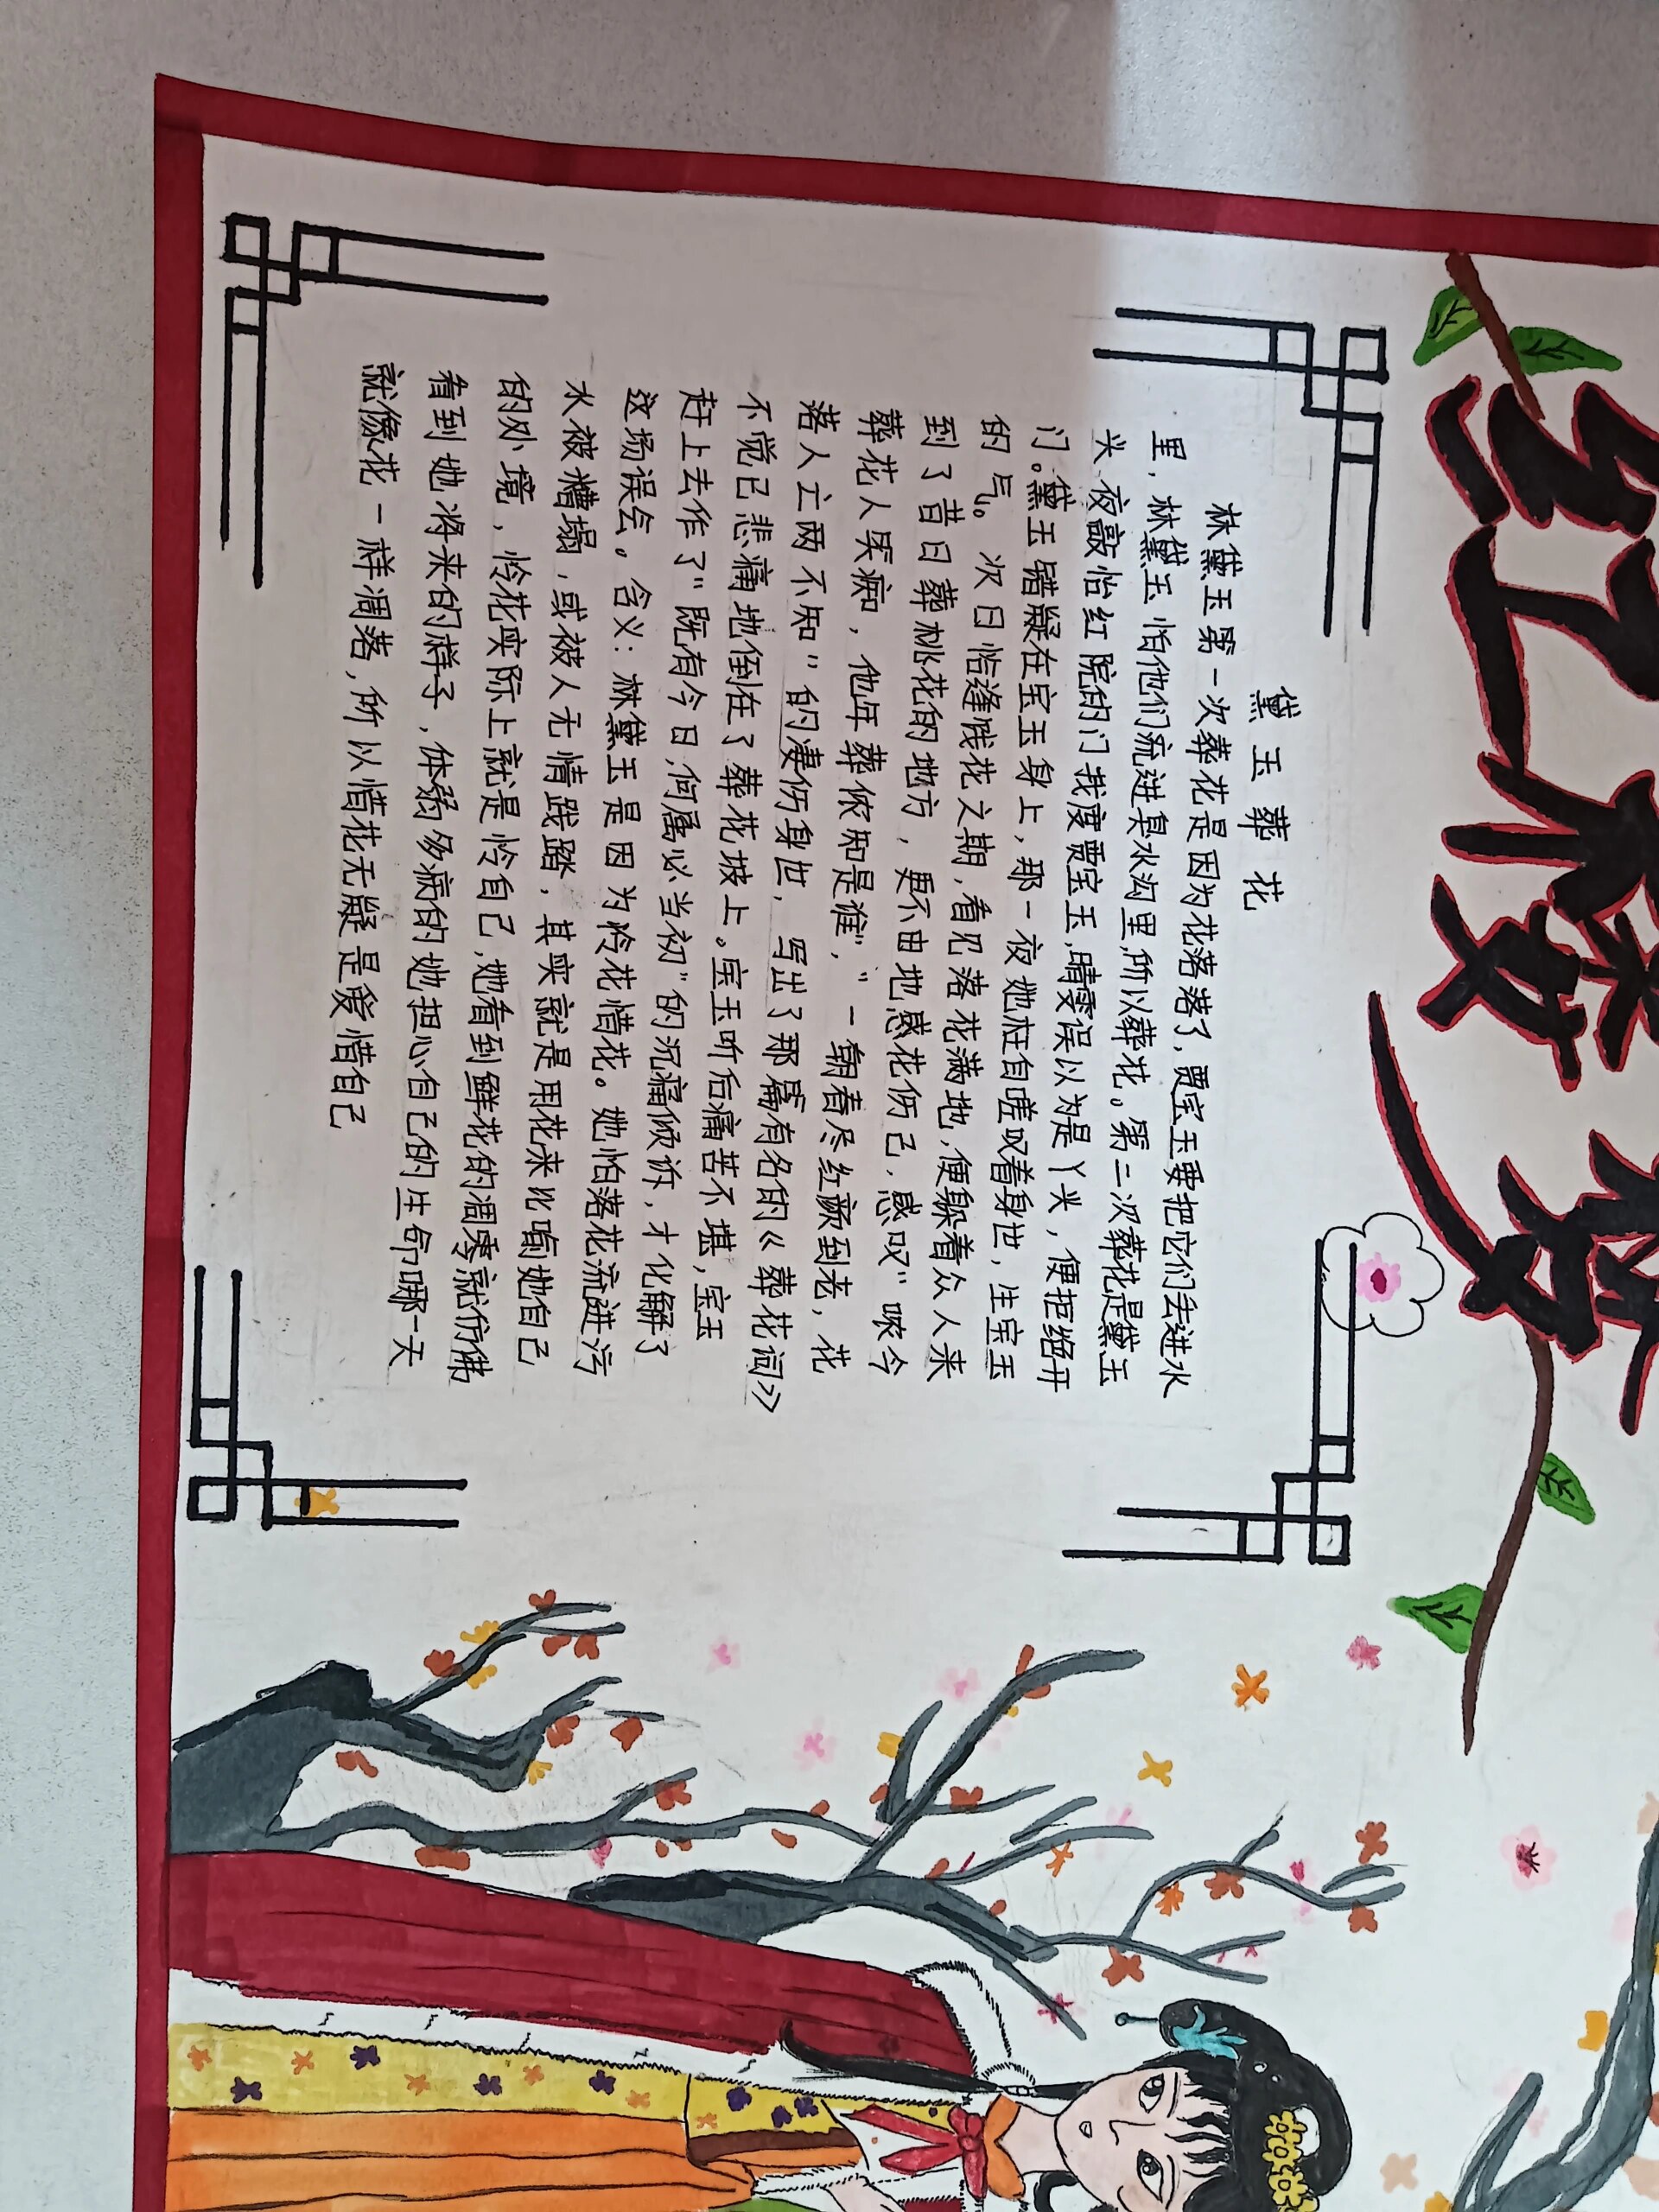 红楼梦
黛玉葬花
林黛玉第一次葬花是因为花落落了,贾宝玉要把它们丢进水
里,林黛玉怕他们流进臭水沟里,所以葬花。第二次葬花是黛玉
兴夜敲怡红院的门找度贾宝玉,晴雯误以为是丫头,便拒绝开
门。黛玉错凝在宝玉身上,那一夜她枉自嗟叹着身世,生宝玉
的气。次日恰逢饯花之期,看见落花满地,便躲着众人来
到了昔日葬桃花的地方,要不由地感花伤己,感叹"侬今
葬花人笑痴,他年葬侬知是谁","一朝春尽红颜到老,花
落人亡两不知"的凄伤身世,写出了那篇有名的《葬花词》
不觉已悲痛地倒在了葬花坡上。宝玉听后痛苦不堪,宝玉
赶上去作了"既有今日,何属必当初"的沉痛倾诉,才化解了
这场误会。含义:林黛玉是因为怜花惜花。她怕落花流进污
水被糟塌,或被人无情践踏,其实就是用花来比喻她自己
的处境,怜花实际上就是怜自己,她看到鲜花的凋零就仿佛
看到她将来的样子,体弱多病的她担心自己的生命哪一天
就像花一样凋落,所以惜花无凝是爱惜自己